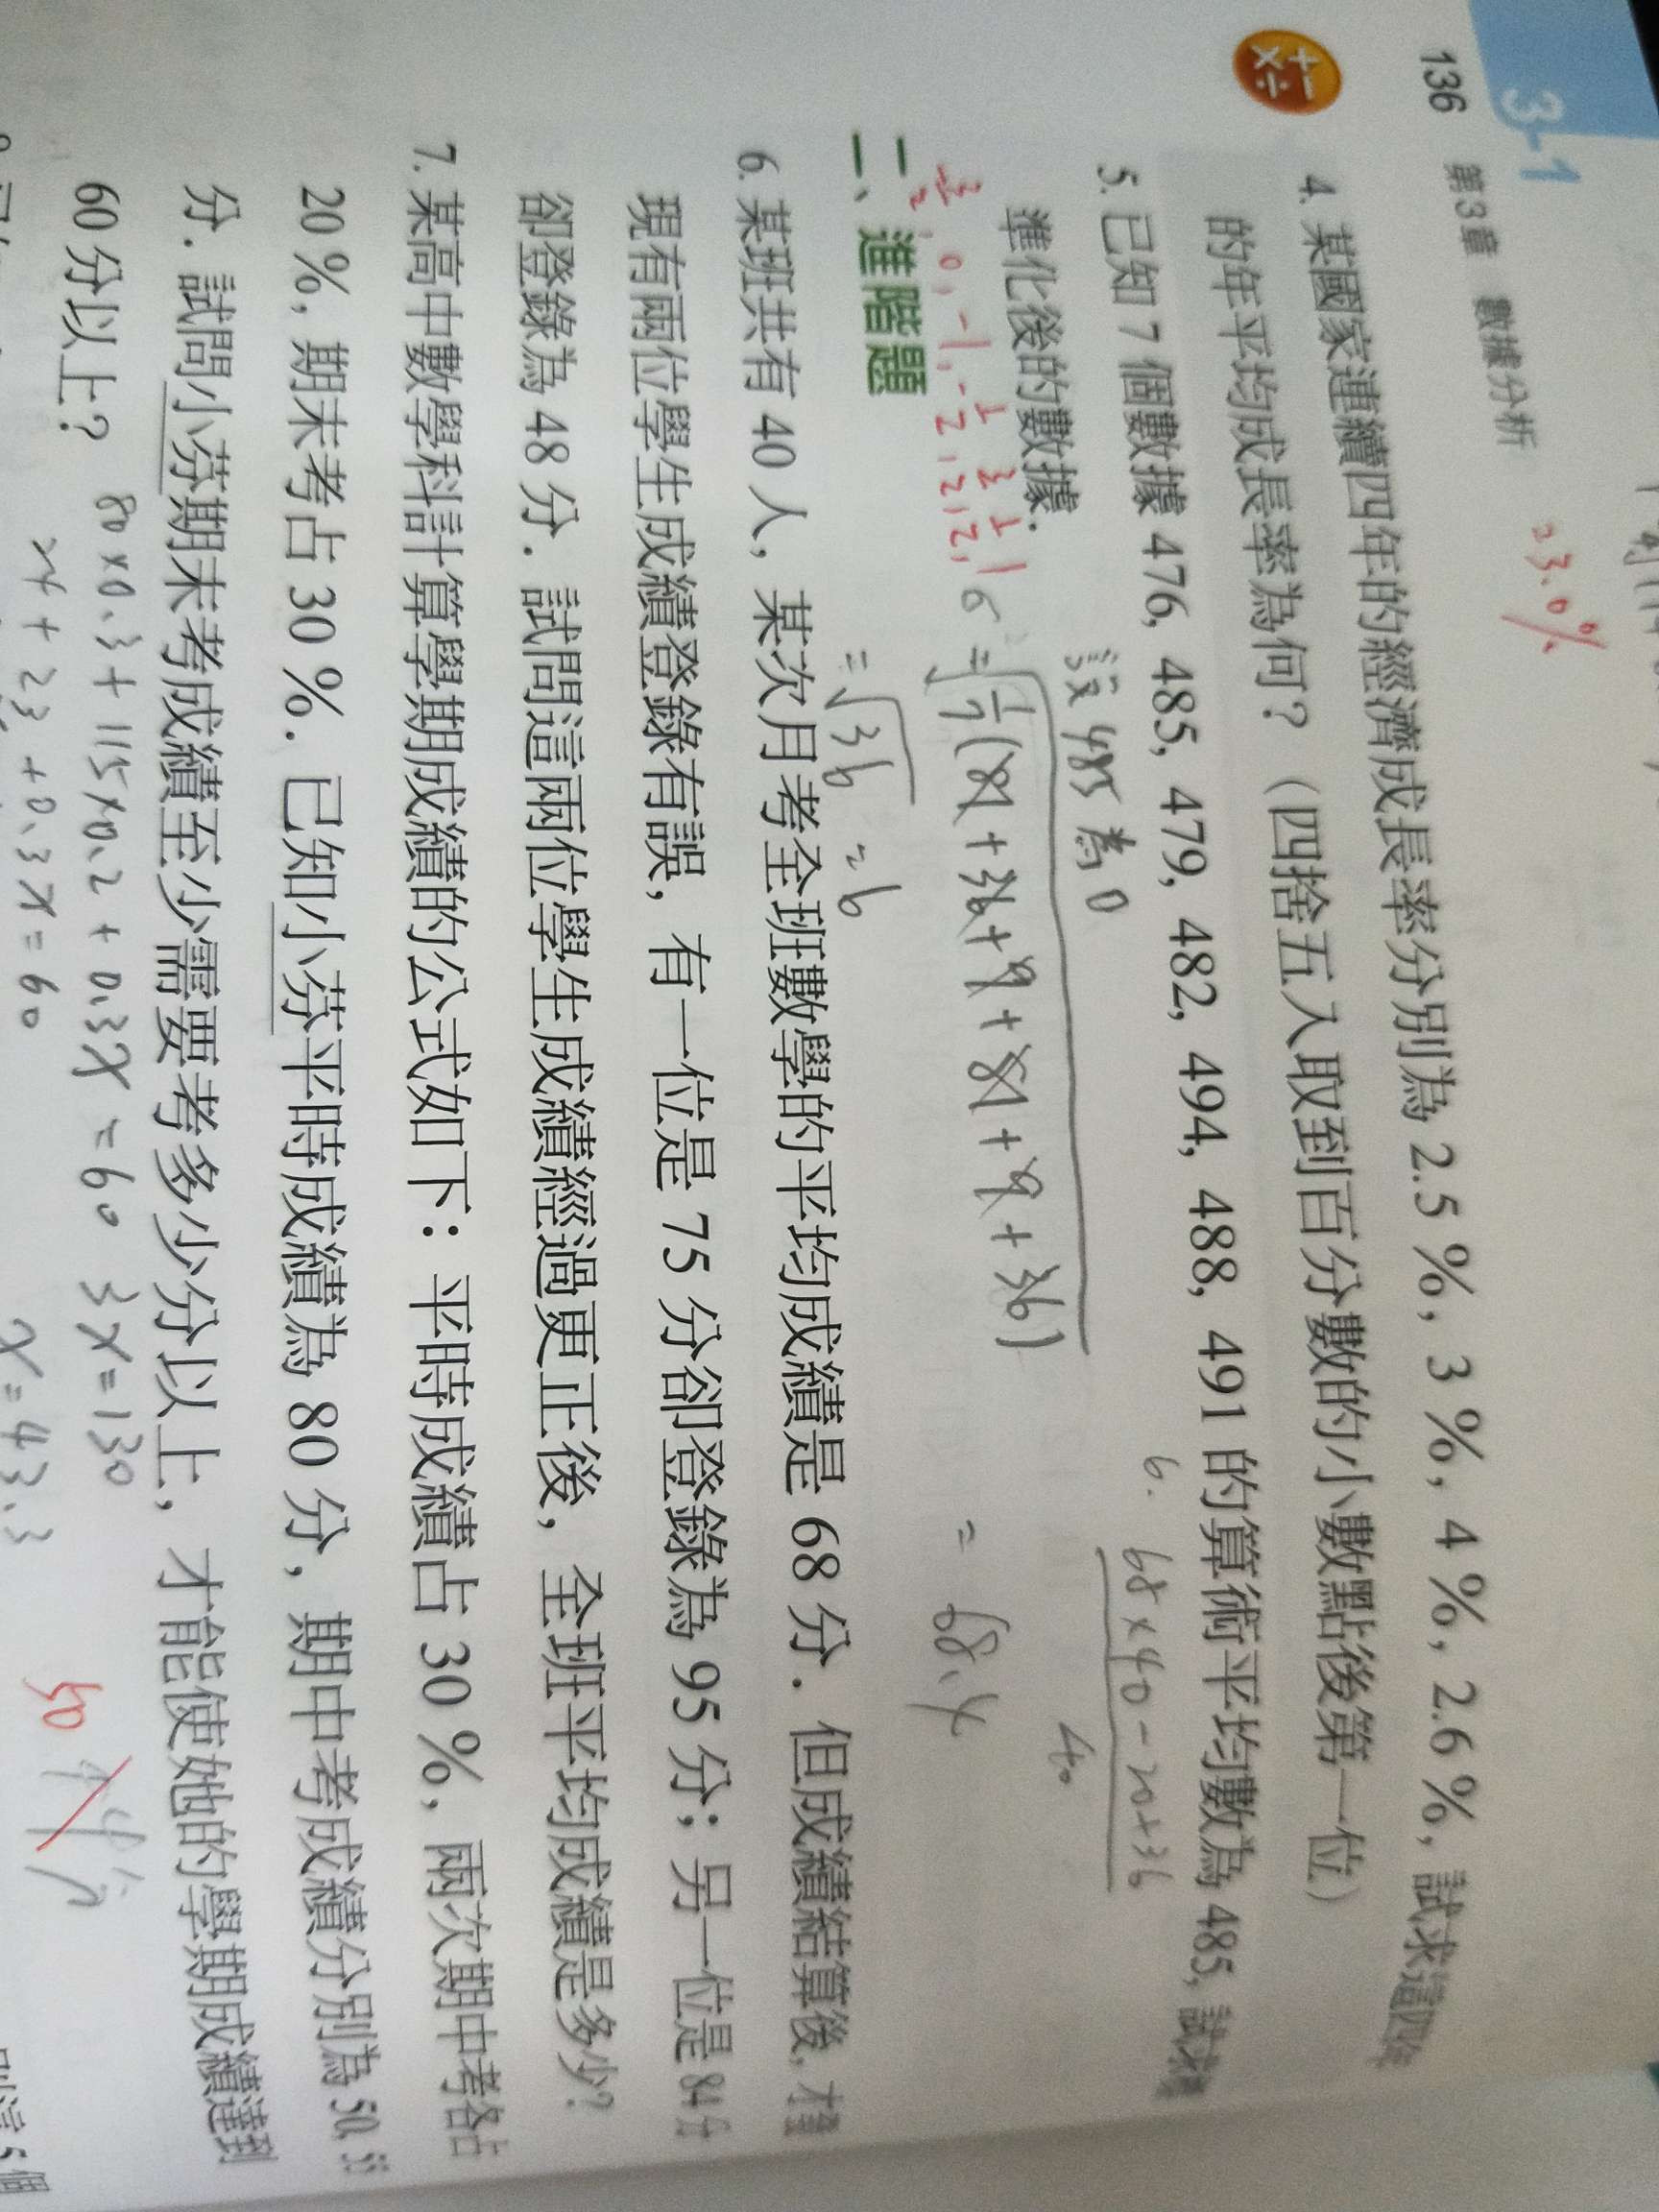 3-1
136 第3章 數據分析
≒3.0%
4. 某國家連續四年的經濟成長率分別為 2.5 %, 3 %, 4 %, 2.6 %, 試求這四年
的年平均成長率為何?(四捨五入取到百分數的小數點後第一位)
5. 已知 7 個數據 476, 485, 479, 482, 494, 488, 491 的算術平均數為 485, 試求
準化後的數據.
設 485 為 0
6. 68×40-20+36
40
= 68.4
= √36 = 6
二、進階題
6. 某班共有 40 人, 某次月考全班數學的平均成績是 68 分. 但成績結算後, 才
現有兩位學生成績登錄有誤, 有一位是 75 分卻登錄為 95 分; 另一位是 84 分
卻登錄為 48 分. 試問這兩位學生成績經過更正後, 全班平均成績是多少?
7. 某高中數學科計算學期成績的公式如下: 平時成績占 30 %, 兩次期中考各占
20 %, 期末考占 30 %. 已知小芬平時成績為 80 分, 期中考成績分別為 50, 55
分. 試問小芬期末考成績至少需要考多少分以上, 才能使她的學期成績達到
60 分以上?
80×0.3+115×0.2+0.3x=60 3x=130
24+23+0.3x=60 x=43.3
50